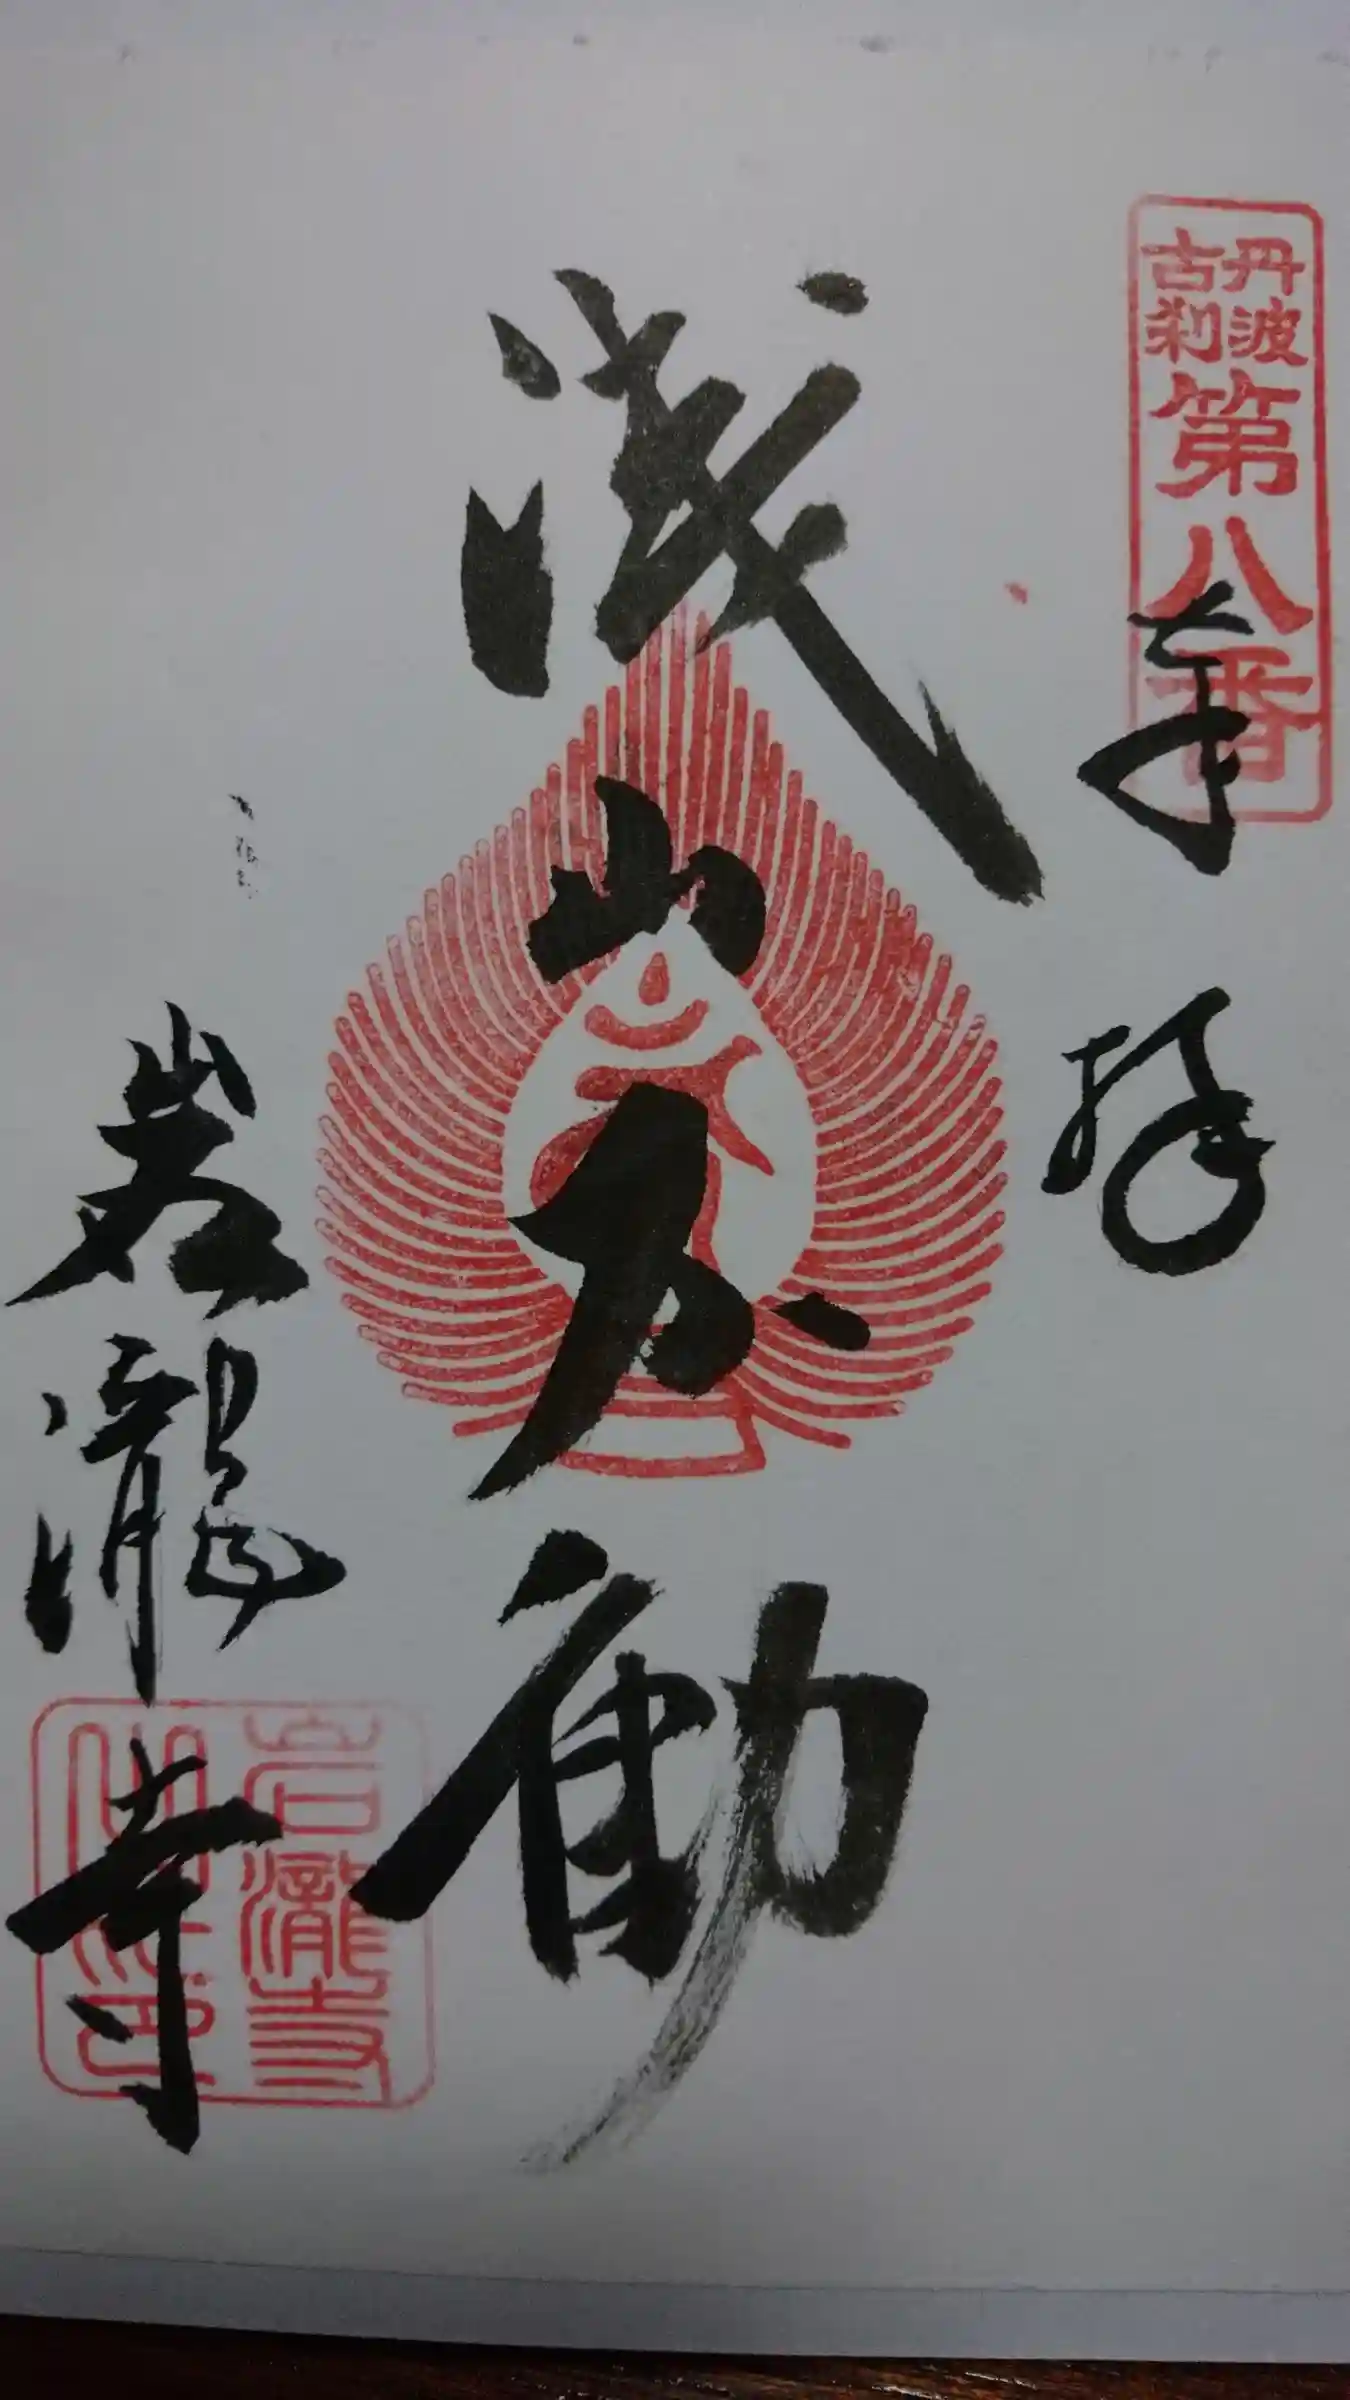 丹波
古刹
第八番
奉拝
浅山不動
岩瀧寺
岩瀧寺